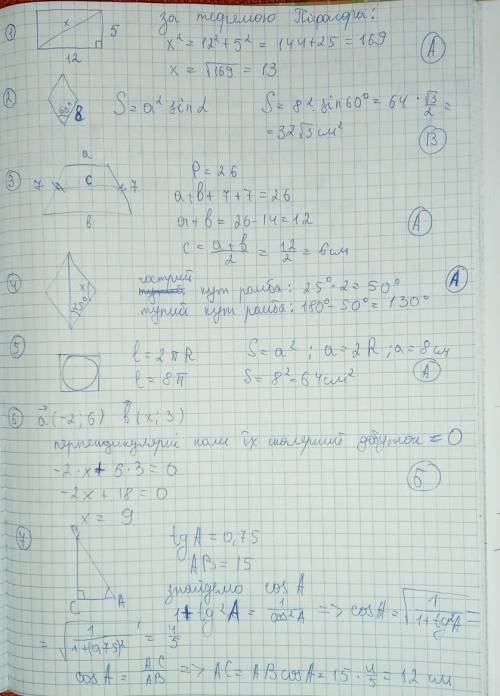 за теоремою Піфагора:
1 x 5 12
x² = 12² + 5² = 144 + 25 = 169
x = √169 = 13
А
2 60° 8 S = a² sin α S = 8² · sin 60° = 64 · √3/2 =
= 32√3 см²
В
3 a c 7 7 в
P = 26
a + в + 7 + 7 = 26
a + в = 26 - 14 = 12
c = (a + в)/2 = 12/2 = 6 см
А
4 x 25°
гострий кут ромба: 25° · 2 = 50°
тупий кут ромба: 180° - 50° = 130°
А
5 l = 2πR S = a² ; a = 2R ; a = 8 см
l = 8π S = 8² = 64 см²
А
6 a⃗ (-2; 6) b⃗ (x; 3)
перпендикулярні коли їх скалярний добуток = 0
-2 · x + 6 · 3 = 0
-2x + 18 = 0
x = 9
Б
7 B C A
tg A = 0,75
AB = 15
знайдемо cos A
1 + tg²A = 1/cos²A => cos A = √(1/(1 + tg²A)) =
= √(1/(1 + (0,75)²)) = 4/5
cos A = AC/AB => AC = AB cos A = 15 · 4/5 = 12 см